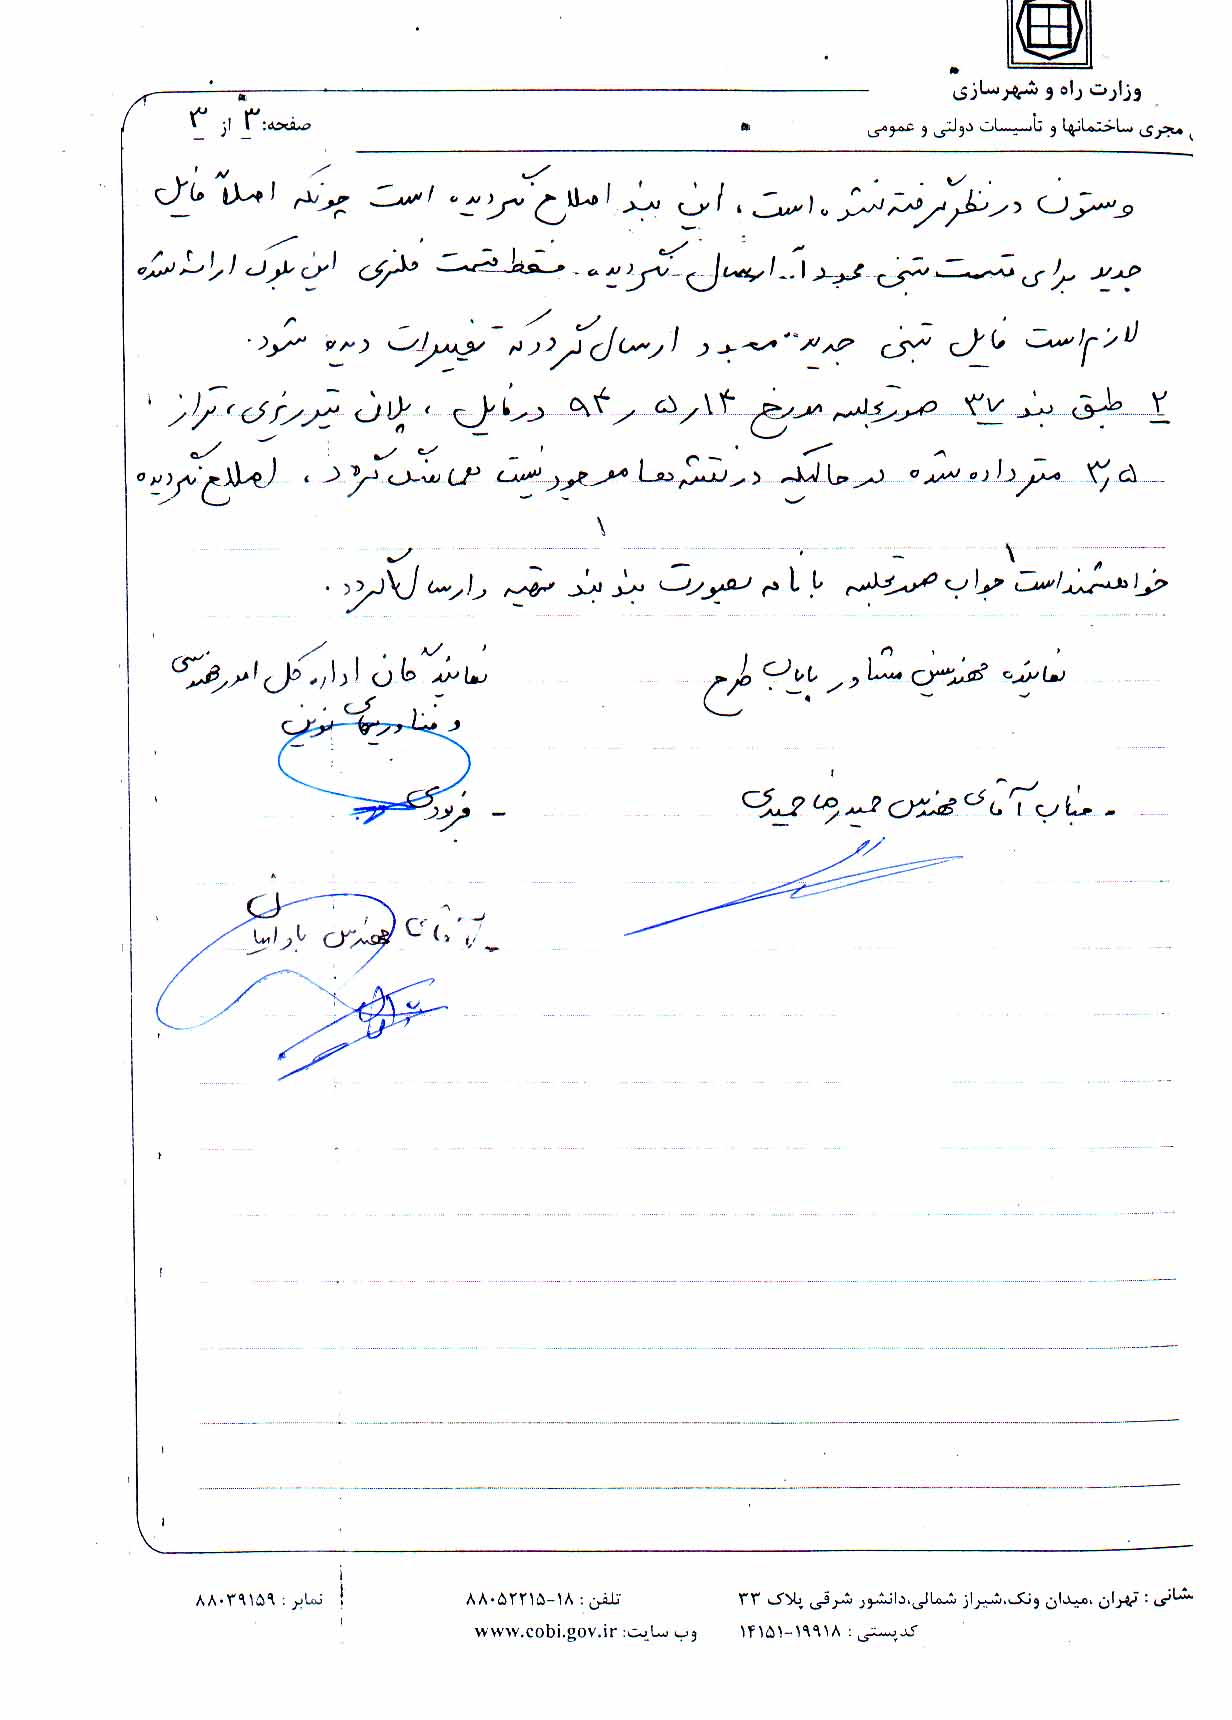 وزارت راه و شهرسازی
مجری ساختمانها و تأسیسات دولتی و عمومی
صفحه: ۳ از ۳
وستون درنظر گرفته نشده است، این بند اصلاح نگردیده است چونکه اصلاً فایل
جدید برای قسمت بتنی مجدداً ارسال نگردیده فقط قسمت فلزی این بلوک ارائه شده
لازم است فایل بتنی جدید مجدد ارسال گردد که تغییرات دیده شود.
۲ طبق بند ۳۷ صورتجلسه مورخ ۹۴٫۵٫۱۴ درفایل، پلان تیرریزی، تراز
۳٫۵ متر داده شده در حالیکه در نقشه ها موجود نیست هماهنگ گردد، اصلاح نگردیده
خواهشمند است جواب صورتجلسه با نامه بصورت بند بند تهیه و ارسال گردد.
نماینده مهندسین مشاور پایاب طرح
نمایندگان اداره کل امور مهندسی
و فناوریهای نوین
- جناب آقای مهندس حمیدرضا حمیدی
-
- آقای مهندس
شانی : تهران ،میدان ونک،شیراز شمالی،دانشور شرقی پلاک ۳۳
تلفن : ۱۸-۸۸۰۵۲۲۱۵
نمابر : ۸۸۰۳۹۱۵۹
کدپستی : ۱۹۹۱۸-۱۴۱۵۱
وب سایت: www.cobi.gov.ir